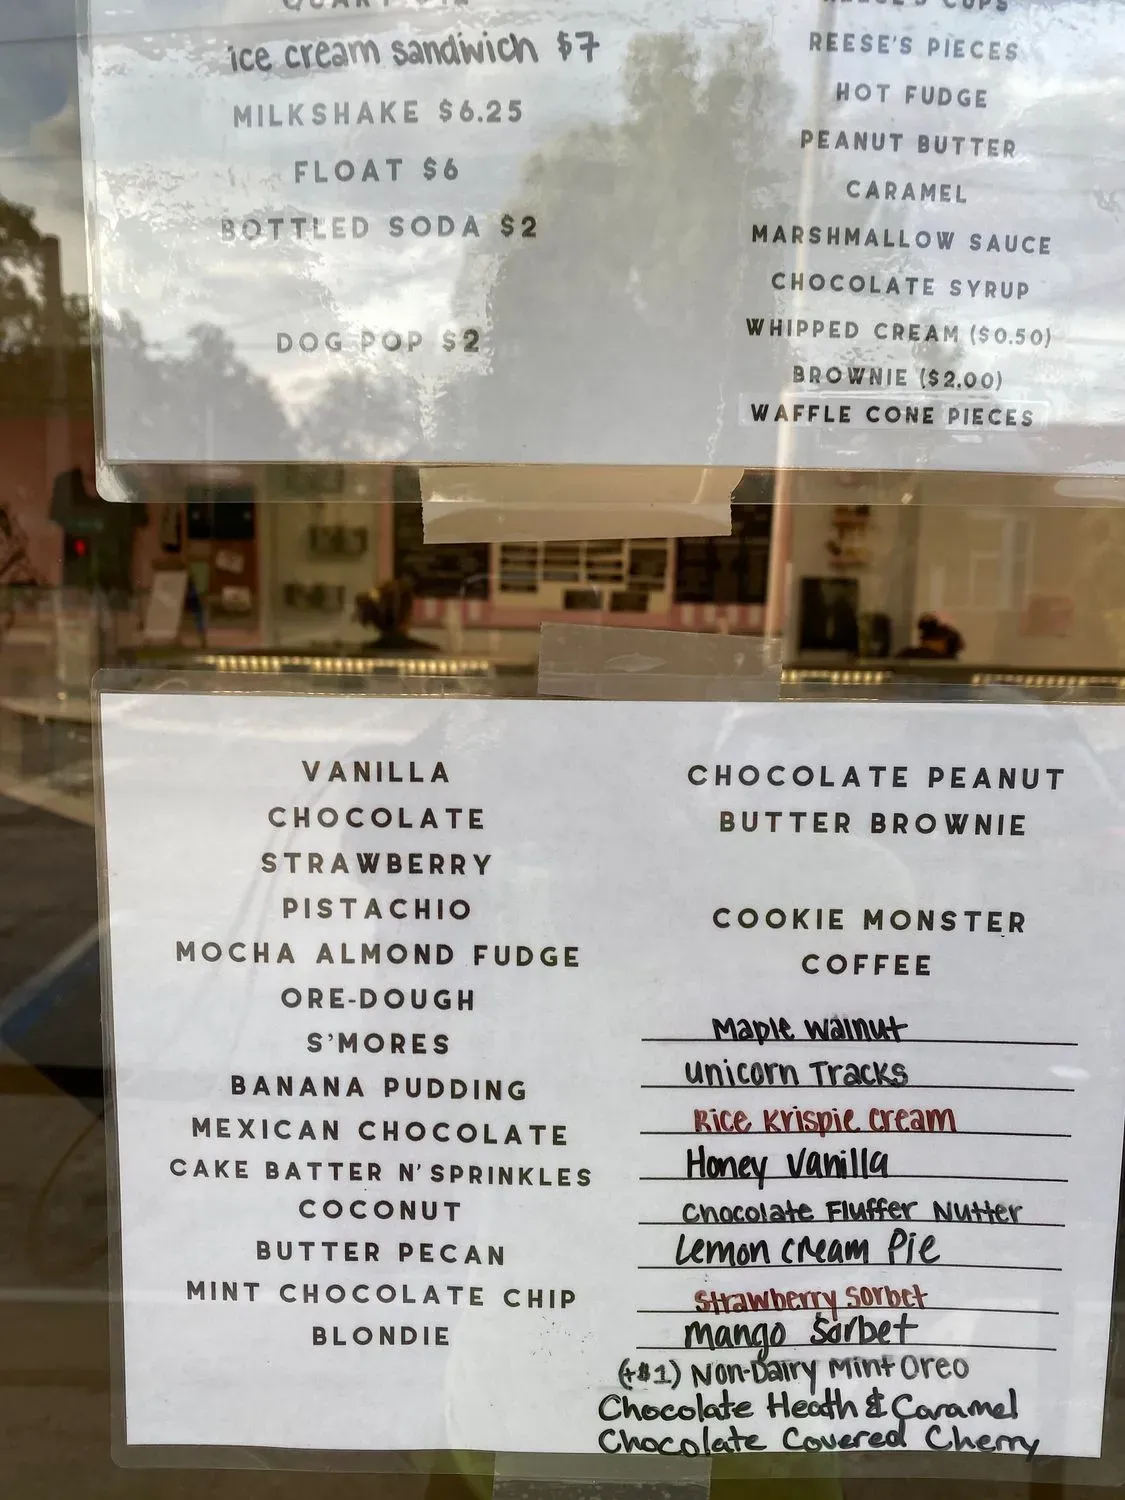 ice cream sandwich $7
MILKSHAKE $6.25
FLOAT $6
BOTTLED SODA $2
DOG POP $2
REESE'S CUPS
REESE'S PIECES
HOT FUDGE
PEANUT BUTTER
CARAMEL
MARSHMALLOW SAUCE
CHOCOLATE SYRUP
WHIPPED CREAM ($0.50)
BROWNIE ($2.00)
WAFFLE CONE PIECES
VANILLA
CHOCOLATE
STRAWBERRY
PISTACHIO
MOCHA ALMOND FUDGE
ORE-DOUGH
S'MORES
BANANA PUDDING
MEXICAN CHOCOLATE
CAKE BATTER N' SPRINKLES
COCONUT
BUTTER PECAN
MINT CHOCOLATE CHIP
BLONDIE
CHOCOLATE PEANUT
BUTTER BROWNIE
COOKIE MONSTER
COFFEE
Maple Walnut
Unicorn Tracks
Rice Krispie Cream
Honey Vanilla
Chocolate Fluffer Nutter
Lemon Cream Pie
Strawberry Sorbet
Mango Sorbet
(+$1) Non-Dairy Mint Oreo
Chocolate Heath & Caramel
Chocolate Covered Cherry